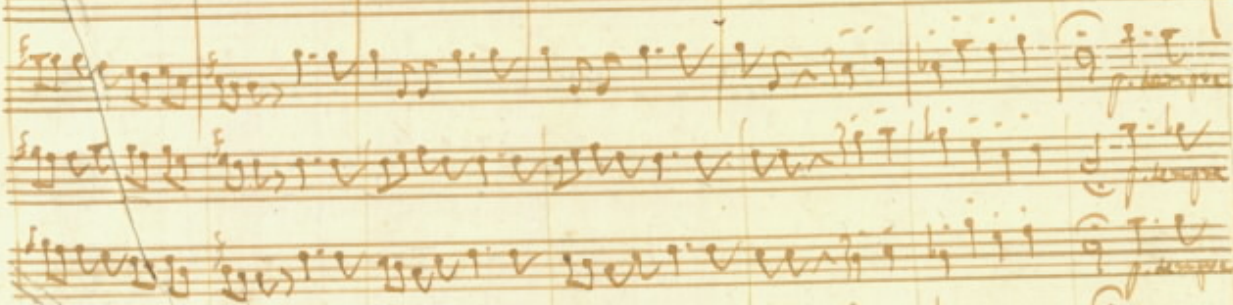 p. sempre
p. sempre
p. sempre